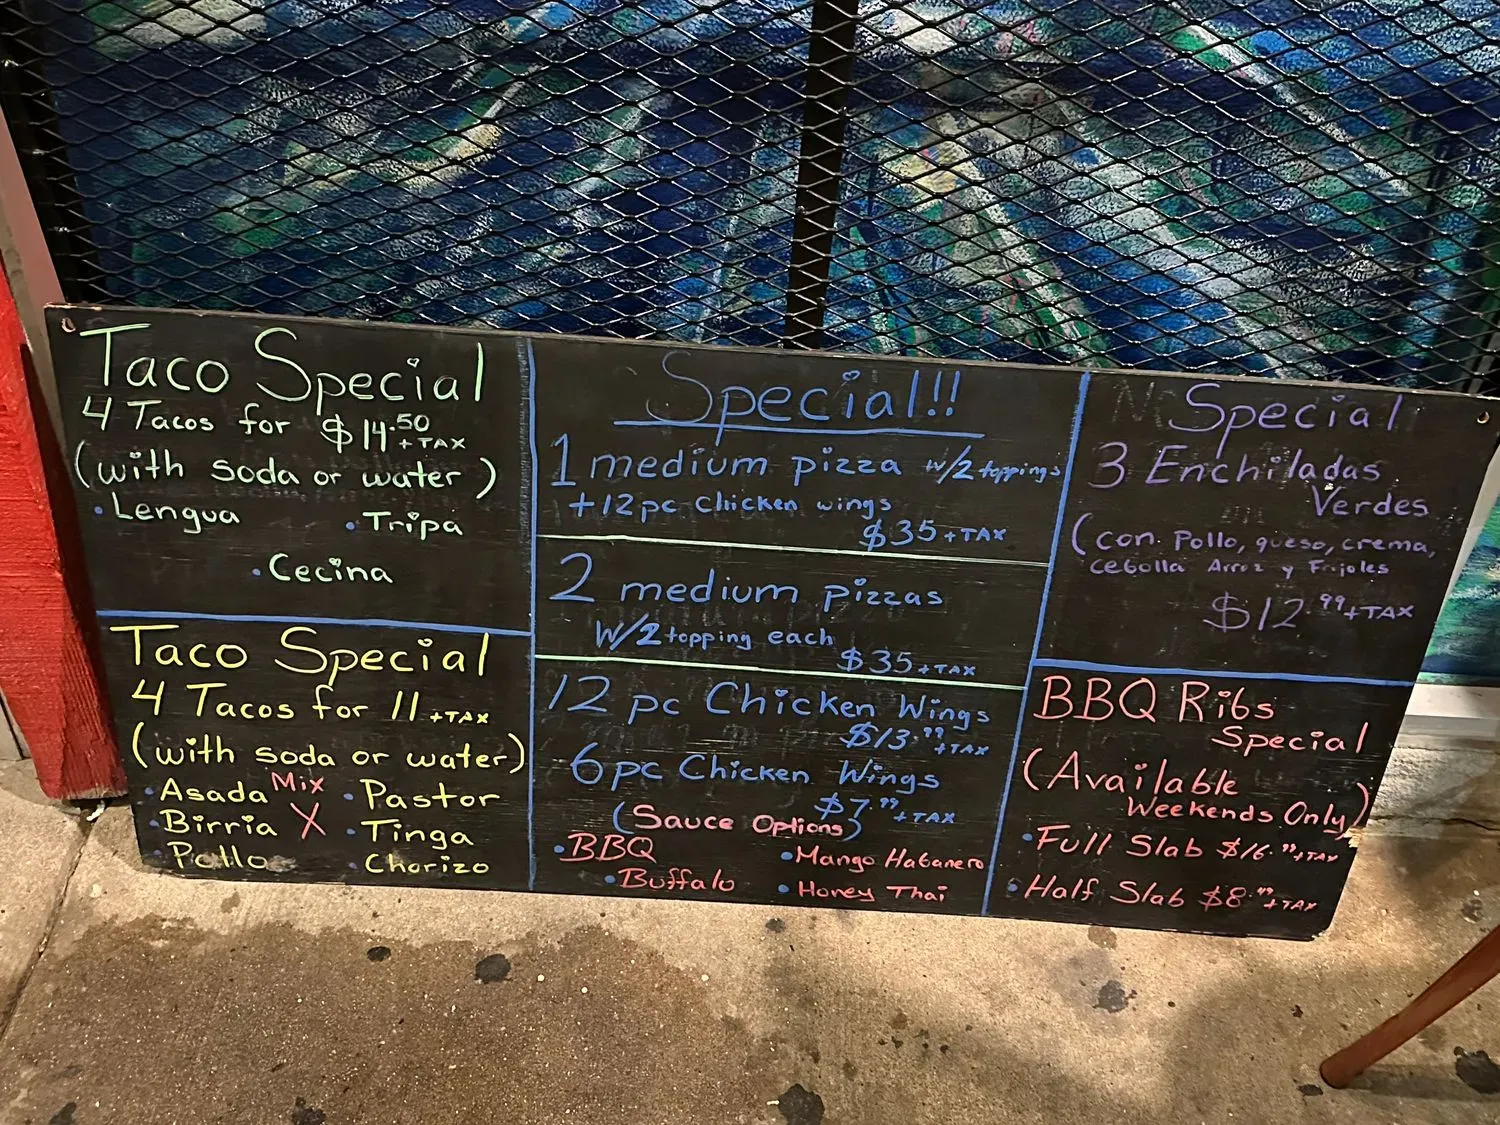 Taco Special
4 Tacos for $14.50
+TAX
(with soda or water)
• Lengua
• Tripa
• Cecina
Taco Special
4 Tacos for 11 +TAX
(with soda or water)
• Asada
Mix
• Pastor
• Birria
X
• Tinga
• Pollo
• Chorizo
Special!!
1 medium pizza w/2 toppings
+12pc chicken wings
$35 +TAX
2 medium pizzas
w/2 topping each
$35 +TAX
12 pc Chicken Wings
$13.99 +TAX
6pc Chicken Wings
$7.99 +TAX
(Sauce Options)
• BBQ
• Mango Habanero
• Buffalo
• Honey Thai
Special
3 Enchiladas
Verdes
(con Pollo, queso, crema,
cebolla Arroz y Frijoles
$12.99 +TAX
BBQ Ribs
Special
(Available
Weekends Only)
• Full Slab $16.99 +TAX
• Half Slab $8.99 +TAX